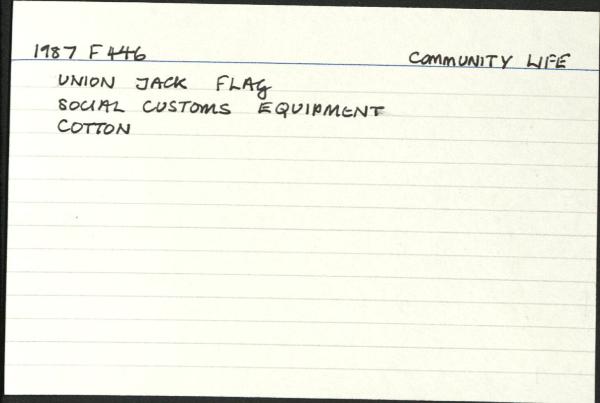 1987 F 446 COMMUNITY LIFE
UNION JACK FLAG
SOCIAL CUSTOMS EQUIPMENT
COTTON